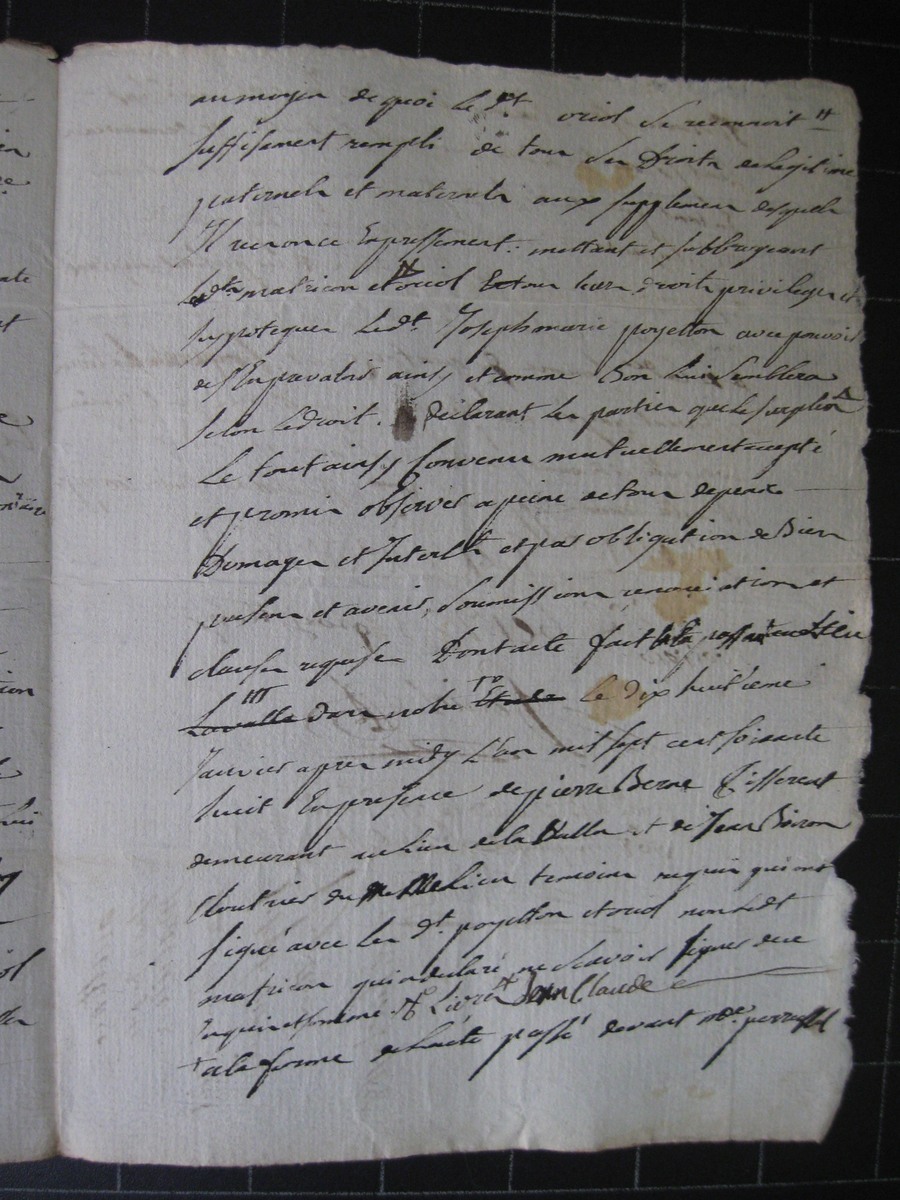 au moyen de quoi le dt oriol se reconnoit #
suffisament rempli de tous ses Droits de Legitime
paternels et maternels aux supplemens desquels
Il renonce Expressement: mettant et subbrogeant
Lesdts matricon et oriol En tous leurs droits privileges et
hypoteques Ledt Joseph marie poyetton avec pouvoir
de s'En prevaloir ainsy et comme bon Lui Semblera
selon Le droit. declarant les parties que le
Le tout ainsy Convenu mutuellement accepté
et promis observer a peine de tous depens
Domages et Interets et par obligation de Biens
presens et avenir, Soumissions renonciations et
clauses requises Dont acte fait
Lavalla dans notre Etude le dix huitième
Janvier apres midy L'an mil sept cent soixante
huit En presence de pierre Berne Tisserent
demeurant au Lieu de la Valla et de Jean Boiron
Cloutrier du lieu temoins requis qui ont
signé avec les dt poyetton et oriol non Ledt
matricon qui a declaré ne scavoir signer de ce
Enquis et somme Jean Claude
+ a la forme de Lacte passé devant me